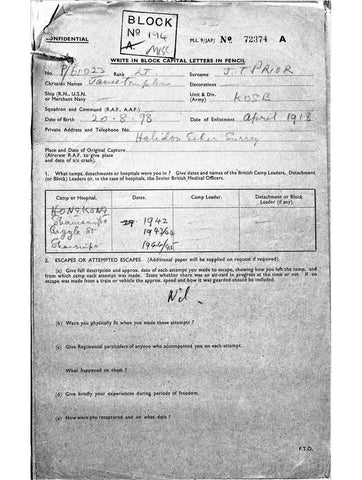 BLOCK
Nº 194
MISC
CONFIDENTIAL
M.I. 9/JAP/ Nº 72374 A
WRITE IN BLOCK CAPITAL LETTERS IN PENCIL
No. P/61023 Rank LT Surname J.T PRIOR
Christian Names Decorations
Ship (R.N., U.S.N. or Merchant Navy) Unit & Div. (Army) KOSB
Squadron and Command (R.A.F., A.A.F.)
Date of Birth 20-8-98 Date of Enlistment April 1918
Private Address and Telephone No. Surrey
Place and Date of Original Capture.
(Aircrew R.A.F. to give place
and date of a/c crash).
1. What camps, detachments or hospitals were you in? Give dates and names of the British Camp Leaders, Detachment
(or Block) Leaders or, in the case of hospitals, the Senior British Medical Officers.
Camp or Hospital. Dates. Camp Leader. Detachment or Block Leader (if any).
HONG KONG
Shamsuipo 1942
Argyle St 1943/44
Shamsuipo 1944/45
2. ESCAPES OR ATTEMPTED ESCAPES. (Additional paper will be supplied on request if required).
(a) Give full description and approx. date of each attempt you made to escape, showing how you left the camp, and
from which camp each attempt was made. State whether there was an air-raid in progress at the time or not. If an
escape was made from a train or vehicle the approx. speed and how it was guarded should be included.
Nil.
(b) Were you physically fit when you made these attempts ?
(c) Give Regimental particulars of anyone who accompanied you on each attempt.
What happened to them ?
(d) Give briefly your experiences during periods of freedom.
(e) How were you recaptured and on what date ?
P.T.O.